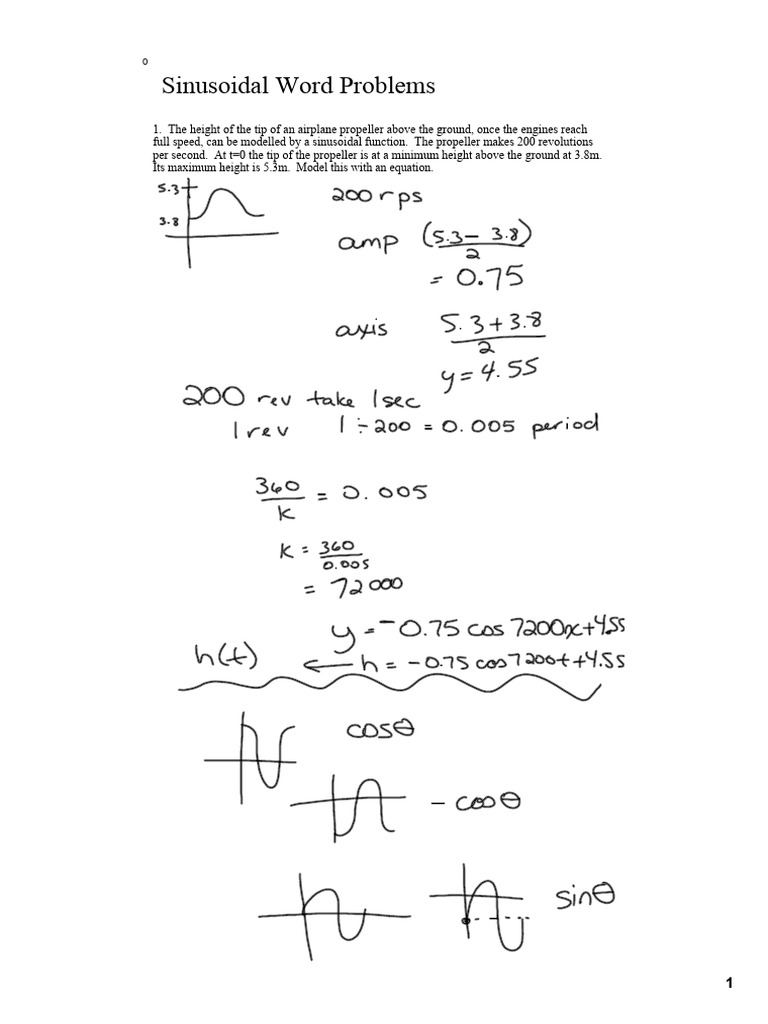 o
Sinusoidal Word Problems
1. The height of the tip of an airplane propeller above the ground, once the engines reach
full speed, can be modelled by a sinusoidal function. The propeller makes 200 revolutions
per second. At t=0 the tip of the propeller is at a minimum height above the ground at 3.8m.
Its maximum height is 5.3m. Model this with an equation.
5.3
3.8
200 rps
amp (5.3 - 3.8)
2
= 0.75
axis 5.3 + 3.8
2
y = 4.55
200 rev take 1 sec
1 rev 1 ÷ 200 = 0.005 period
360
k
= 0.005
k = 360
0.005
= 72000
y = -0.75 cos 7200x + 4.55
h(t) ← h = -0.75 cos 7200t + 4.55
cosθ
- cosθ
sinθ
1